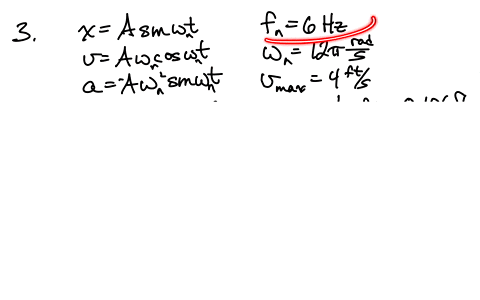 3. x = A sin ωₙt fₙ = 6 Hz
v = Aωₙcos ωₙt ωₙ = 12π rad/s
a = -Aωₙ² sin ωₙt v_max = 4 ft/s